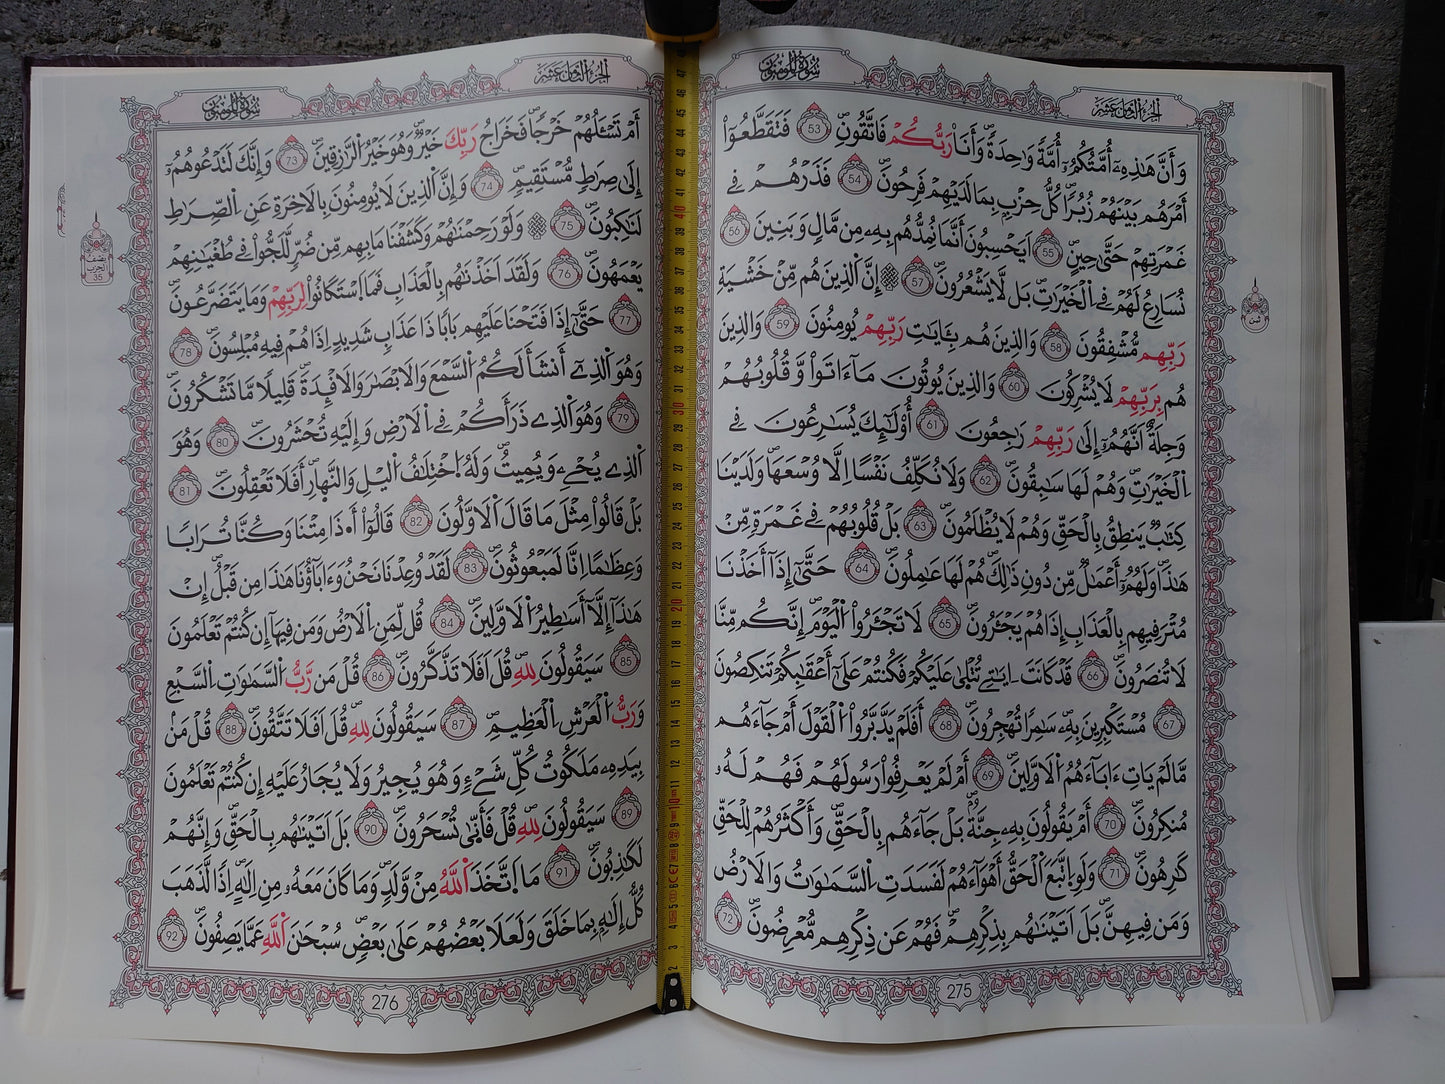 سُورَةُ المُومِنُونَ
الجُزْءُ الثَّامِنَ عَشَرَ
وَأَنَّ هَٰذِهِۦٓ أُمَّتُكُمُۥٓ أُمَّةٗ وَٰحِدَةٗ وَأَنَا رَبُّكُمْ فَاتَّقُونِۖ 53 فَتَقَطَّعُوٓاْ
أَمْرَهُم بَيْنَهُمْ زُبُراٗ كُلُّ حِزْبِۢ بِمَا لَدَيْهِمْ فَرِحُونَۖ 54 فَذَرْهُمْ فِي
غَمْرَتِهِمْ حَتَّىٰ حِينٍۖ 55 اَيَحْسِبُونَ أَنَّمَا نُمِدُّهُم بِهِۦ مِن مَّالٖ وَبَنِينَ 56
نُسَارِعُ لَهُمْ فِي اِ۬لْخَيْرَٰتِۖ بَل لَّا يَشْعُرُونَۖ 57 إِنَّ اَ۬لذِينَ هُم مِّنْ خَشْيَةِ
رَبِّهِم مُّشْفِقُونَ 58 وَالذِينَ هُم بِـَٔايَٰتِ رَبِّهِمْ يُومِنُونَ 59 وَالذِينَ
هُم بِرَبِّهِمْ لَا يُشْرِكُونَ 60 وَالذِينَ يُوتُونَ مَآ ءَاتَواْ وَّقُلُوبُهُمْ
وَجِلَةٌ اَنَّهُمُۥٓ إِلَىٰ رَبِّهِمْ رَٰجِعُونَ 61 أُوْلَٰٓئِكَ يُسَٰرِعُونَ فِي
اِ۬لْخَيْرَٰتِۖ وَهُمْ لَهَا سَٰبِقُونَۖ 62 وَلَا نُكَلِّفُ نَفْساً اِلَّا وُسْعَهَاۖ وَلَدَيْنَا
كِتَٰبٞ يَنطِقُ بِالْحَقِّ وَهُمْ لَا يُظْلَمُونَۖ 63 بَلْ قُلُوبُهُمْ فِي غَمْرَةٖ مِّنْ
هَٰذَا وَلَهُمُۥٓ أَعْمَٰلٞ مِّن دُونِ ذَٰلِكَ هُمْ لَهَا عَٰمِلُونَۖ 64 حَتَّىٰٓ إِذَآ أَخَذْنَا
مُتْرَفِيهِم بِالْعَذَابِ إِذَا هُمْ يَجْـَٔرُونَۖ 65 لَا تَجْـَٔرُواْ اُ۬لْيَوْمَۖ إِنَّكُم مِّنَّا
لَا تُنصَرُونَۖ 66 قَدْ كَانَتَ اٰيَٰتِي تُتْلَىٰ عَلَيْكُمْ فَكُنتُمْ عَلَىٰٓ أَعْقَٰبِكُمْ تَنكِصُونَ
67 مُسْتَكْبِرِينَ بِهِۦۖ سَٰمِراٗ تُهْجِرُونَۖ 68 أَفَلَمْ يَدَّبَّرُواْ اُ۬لْقَوْلَ أَمْ جَآءَهُم
مَّا لَمْ يَاتِ ءَابَآءَهُمُ اُ۬لَاوَّلِينَۖ 69 أَمْ لَمْ يَعْرِفُواْ رَسُولَهُمْ فَهُمْ لَهُۥ
مُنكِرُونَۖ 70 أَمْ يَقُولُونَ بِهِۦ جِنَّةُۢۖ بَلْ جَآءَهُم بِالْحَقِّۖ وَأَكْثَرُهُمْ لِلْحَقِّ
كَٰرِهُونَۖ 71 وَلَوِ اِ۪تَّبَعَ اَ۬لْحَقُّ أَهْوَآءَهُمْ لَفَسَدَتِ اِ۬لسَّمَٰوَٰتُ وَالَارْضُ
وَمَن فِيهِنَّۖ بَلَ اَتَيْنَٰهُم بِذِكْرِهِمْۖ فَهُمْ عَن ذِكْرِهِم مُّعْرِضُونَۖ 72
ثمن
275
الجُزْءُ الثَّامِنَ عَشَرَ
سُورَةُ المُومِنُونَ
أَمْ تَسْـَٔلُهُمْ خَرْجاٗۖ فَخَرَاجُ رَبِّكَ خَيْرٞۖ وَهُوَ خَيْرُ اُ۬لرَّٰزِقِينَۖ 73 وَإِنَّكَ لَتَدْعُوهُمُۥٓ
إِلَىٰ صِرَٰطٖ مُّسْتَقِيمٖۖ 74 وَإِنَّ اَ۬لذِينَ لَا يُومِنُونَ بِالَاخِرَةِ عَنِ اِ۬لصِّرَٰطِ
لَنَٰكِبُونَۖ 75 وَلَوْ رَحِمْنَٰهُمْ وَكَشَفْنَا مَا بِهِم مِّن ضُرّٖ لَّلَجُّواْ فِي طُغْيَٰنِهِمْ
يَعْمَهُونَۖ 76 وَلَقَدَ اَخَذْنَٰهُم بِالْعَذَابِ فَمَا اَ۪سْتَكَانُواْ لِرَبِّهِمْ وَمَا يَتَضَرَّعُونَۖ
77 حَتَّىٰٓ إِذَا فَتَحْنَا عَلَيْهِم بَاباٗ ذَا عَذَابٖ شَدِيدٍ اِذَا هُمْ فِيهِ مُبْلِسُونَۖ 78
وَهُوَ اَ۬لذِےٓ أَنشَأَ لَكُمُ اُ۬لسَّمْعَ وَالَابْصَٰرَ وَالَافْـِٕدَةَۖ قَلِيلاٗ مَّا تَشْكُرُونَۖ
79 وَهُوَ اَ۬لذِے ذَرَأَكُمْ فِي اِ۬لَارْضِ وَإِلَيْهِ تُحْشَرُونَۖ 80 وَهُوَ
اَ۬لذِے يُحْيِۦ وَيُمِيتُۖ وَلَهُ اُ۪خْتِلَٰفُ اُ۬ليْلِ وَالنَّهَارِۖ أَفَلَا تَعْقِلُونَۖ 81
بَلْ قَالُواْ مِثْلَ مَا قَالَ اَ۬لَاوَّلُونَ 82 قَالُوٓاْ أَ۟ذَا مِتْنَا وَكُنَّا تُرَاباٗ
وَعِظَٰماً اِنَّا لَمَبْعُوثُونَۖ 83 لَقَدْ وُعِدْنَا نَحْنُ وَءَابَآؤُنَا هَٰذَا مِن قَبْلُۖ إِنْ
هَٰذَآ إِلَّآ أَسَٰطِيرُ اُ۬لَاوَّلِينَۖ 84 قُل لِّمَنِ اِ۬لَارْضُ وَمَن فِيهَآ إِن كُنتُمْ تَعْلَمُونَ
85 سَيَقُولُونَ لِلهِۖ قُلَ اَفَلَا تَذَّكَّرُونَۖ 86 قُلْ مَن رَّبُّ اُ۬لسَّمَٰوَٰتِ اِ۬لسَّبْعِ
وَرَبُّ اُ۬لْعَرْشِ اِ۬لْعَظِيمِۖ 87 سَيَقُولُونَ لِلهِۖ قُلَ اَفَلَا تَتَّقُونَۖ 88 قُلْ مَنۢ
بِيَدِهِۦ مَلَكُوتُ كُلِّ شَےْءٖ وَهُوَ يُجِيرُ وَلَا يُجَارُ عَلَيْهِ إِن كُنتُمْ تَعْلَمُونَ
89 سَيَقُولُونَ لِلهِۖ قُلْ فَأَنّ۪يٰ تُسْحَرُونَۖ 90 بَلَ اَتَيْنَٰهُم بِالْحَقِّۖ وَإِنَّهُمْ
لَكَٰذِبُونَۖ 91 مَا اَ۪تَّخَذَ اَ۬للَّهُ مِنْ وَّلَدٖۖ وَمَا كَانَ مَعَهُۥ مِنِ اِلَٰهٍۖ اِذاٗ لَّذَهَبَ
كُلُّ إِلَٰهِۢ بِمَا خَلَقَۖ وَلَعَلَا بَعْضُهُمْ عَلَىٰ بَعْضٖۖ سُبْحَٰنَ اَ۬للَّهِ عَمَّا يَصِفُونَۖ 92
نصف
الحزب
35
276